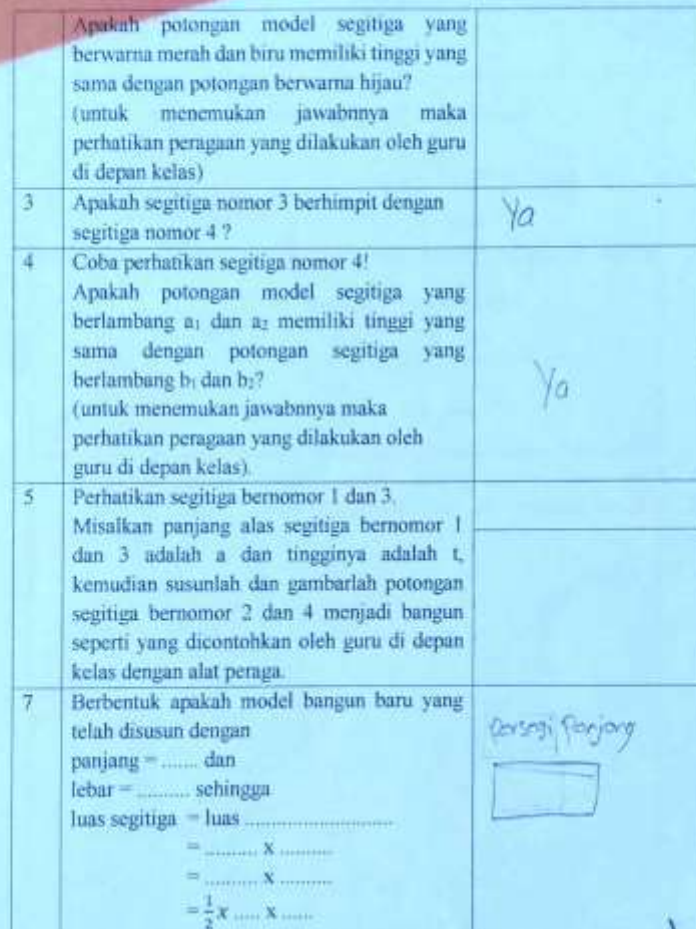 Apakah potongan model segitiga yang
berwarna merah dan biru memiliki tinggi yang
sama dengan potongan berwarna hijau?
(untuk menemukan jawabnnya maka
perhatikan peragaan yang dilakukan oleh guru
di depan kelas)
3 Apakah segitiga nomor 3 berhimpit dengan
segitiga nomor 4 ?
Ya
4 Coba perhatikan segitiga nomor 4!
Apakah potongan model segitiga yang
berlambang a₁ dan a₂ memiliki tinggi yang
sama dengan potongan segitiga yang
berlambang b₁ dan b₂?
(untuk menemukan jawabnnya maka
perhatikan peragaan yang dilakukan oleh
guru di depan kelas).
Ya
5 Perhatikan segitiga bernomor 1 dan 3.
Misalkan panjang alas segitiga bernomor 1
dan 3 adalah a dan tingginya adalah t,
kemudian susunlah dan gambarlah potongan
segitiga bernomor 2 dan 4 menjadi bangun
seperti yang dicontohkan oleh guru di depan
kelas dengan alat peraga.
7 Berbentuk apakah model bangun baru yang
telah disusun dengan
panjang = ....... dan
lebar = .......... sehingga
luas segitiga = luas .............................
= .......... x ..........
= .......... x ..........
= ½ x ..... x ......
Persegi Panjang